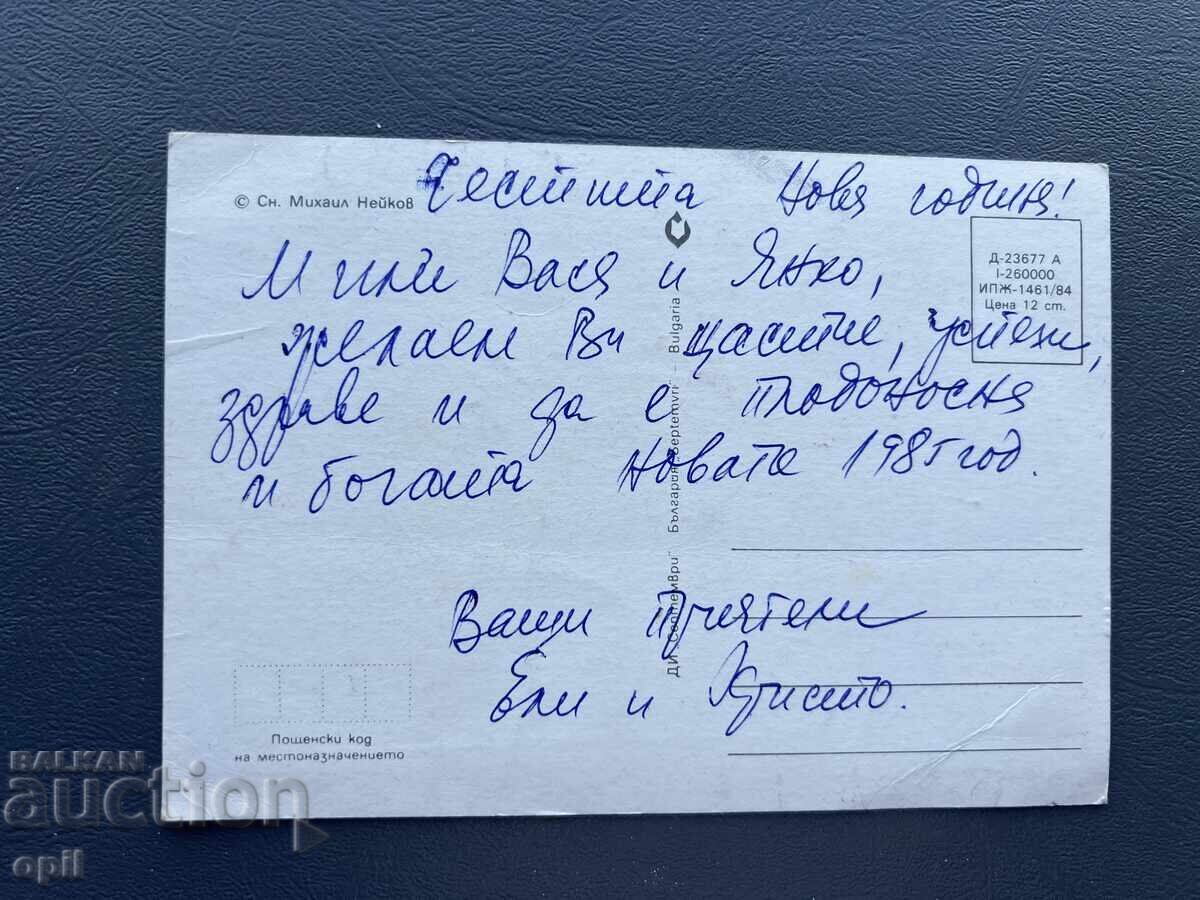 © Сн. Михаил Нейков
Честита Нова година!
Мили Вася и Янко,
желаем Ви щастие, успехи,
здраве и да е плодоносна
и богата Новата 1985 год.
Ваши приятели
Ели и Христо.
Д-23677 А
I-260000
ИПЖ-1461/84
Цена 12 ст.
ДИ „Септември" България „Septemvri" - Bulgaria
Пощенски код
на местоназначението
BALKAN
auction
opil